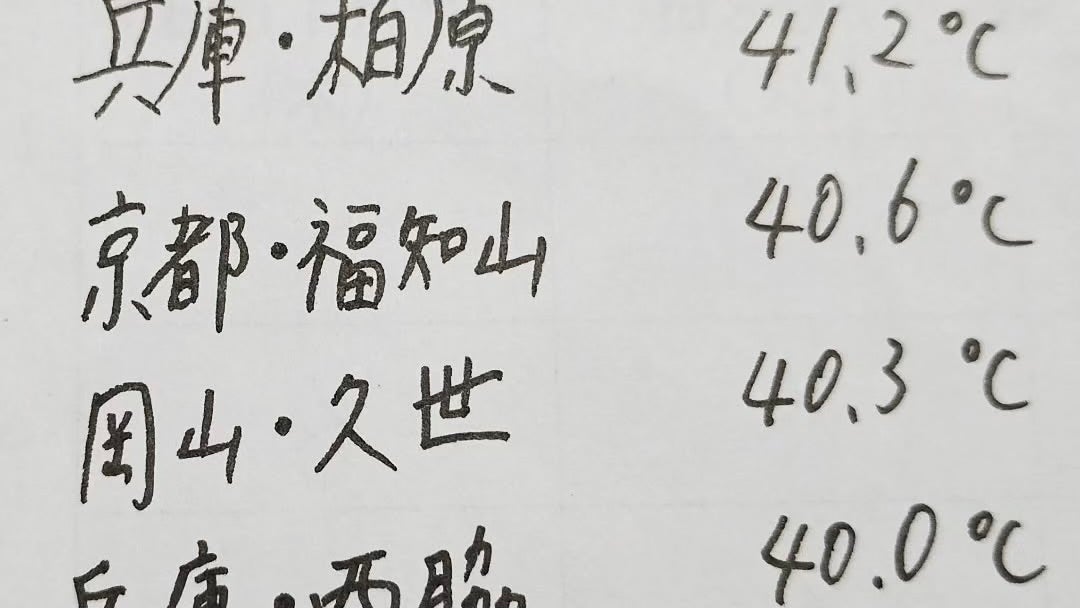 兵庫・柏原 41.2℃
京都・福知山 40.6℃
岡山・久世 40.3℃
兵庫・西脇 40.0℃